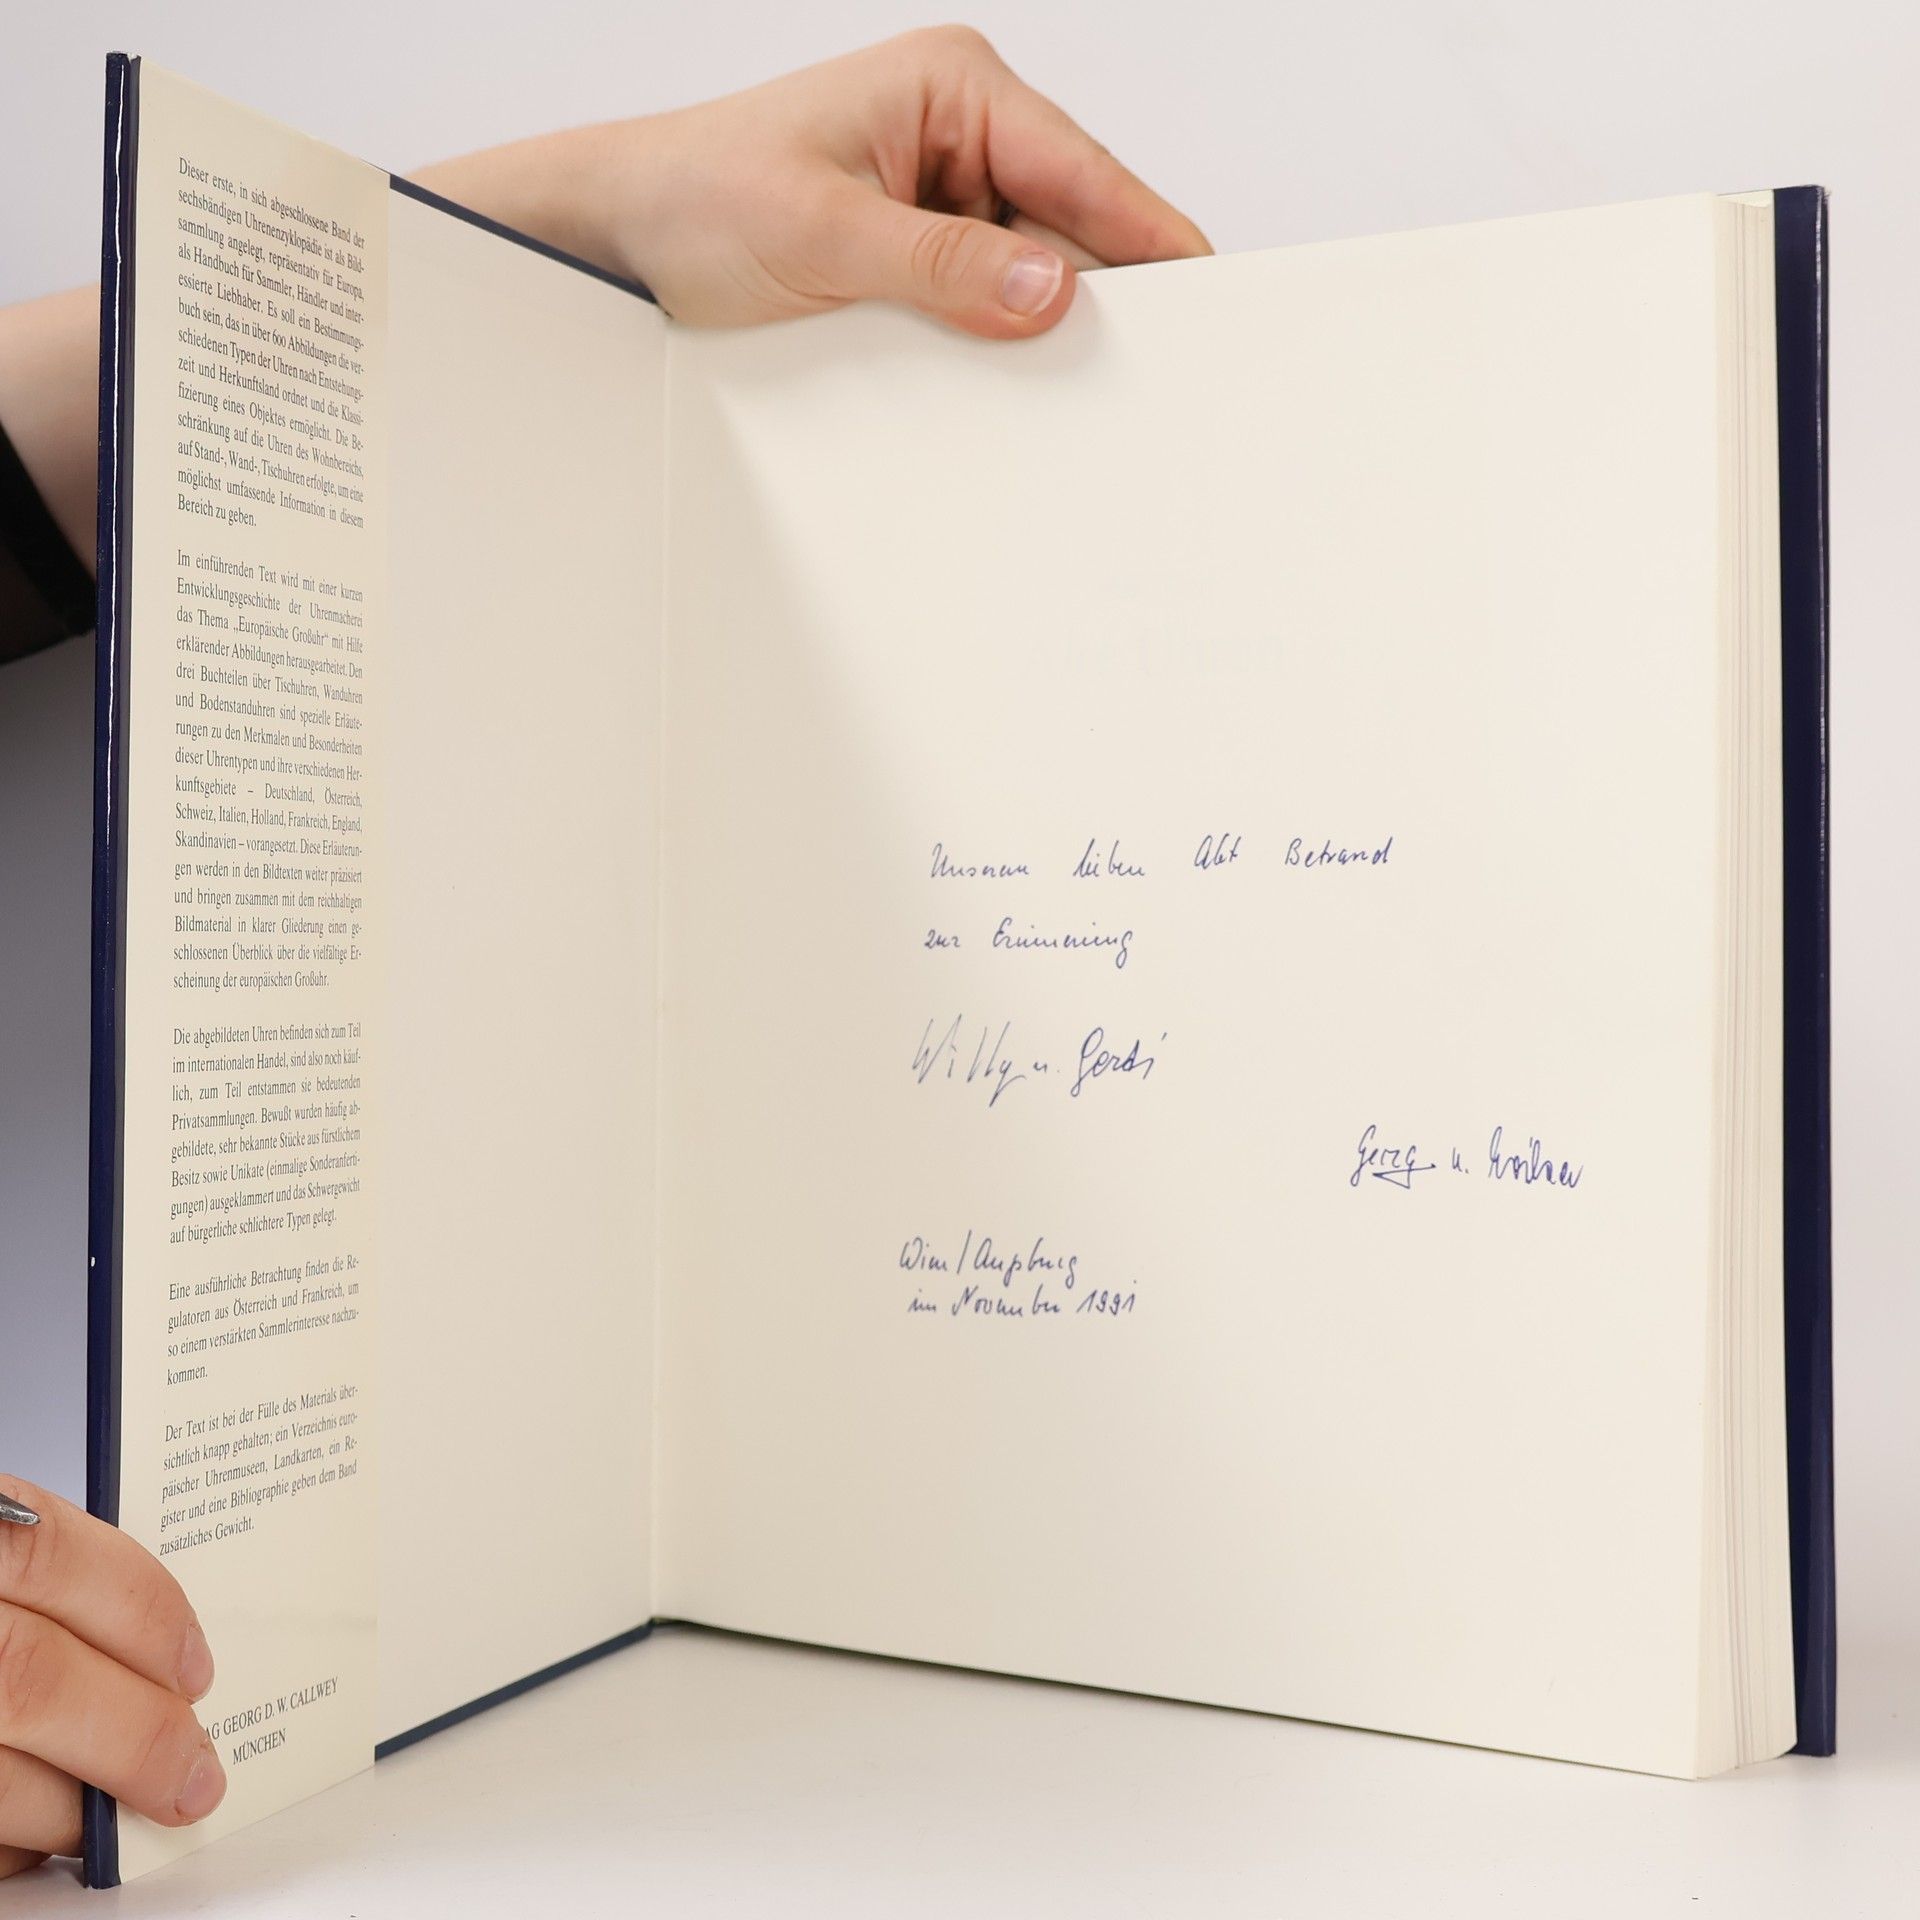 Dieser erste, in sich abgeschlossene Band der
sechsbändigen Uhrenenzyklopädie ist als Bild-
sammlung angelegt, repräsentativ für Europa,
als Handbuch für Sammler, Händler und inter-
essierte Liebhaber. Es soll ein Bestimmungs-
buch sein, das in über 600 Abbildungen die ver-
schiedenen Typen der Uhren nach Entstehungs-
zeit und Herkunftsland ordnet und die Klassi-
fizierung eines Objektes ermöglicht. Die Be-
schränkung auf die Uhren des Wohnbereichs,
auf Stand-, Wand-, Tischuhren erfolgte, um eine
möglichst umfassende Information in diesem
Bereich zu geben.
Im einführenden Text wird mit einer kurzen
Entwicklungsgeschichte der Uhrenmacherei
das Thema „Europäische Großuhr“ mit Hilfe
erklärender Abbildungen herausgearbeitet. Den
drei Buchteilen über Tischuhren, Wanduhren
und Bodenstanduhren sind spezielle Erläute-
rungen zu den Merkmalen und Besonderheiten
dieser Uhrentypen und ihre verschiedenen Her-
kunftsgebiete – Deutschland, Österreich,
Schweiz, Italien, Holland, Frankreich, England,
Skandinavien – vorangesetzt. Diese Erläuterun-
gen werden in den Bildtexten weiter präzisiert
und bringen zusammen mit dem reichhaltigen
Bildmaterial in klarer Gliederung einen ge-
schlossenen Überblick über die vielfältige Er-
scheinung der europäischen Großuhr.
Die abgebildeten Uhren befinden sich zum Teil
im internationalen Handel, sind also noch käuf-
lich, zum Teil entstammen sie bedeutenden
Privatsammlungen. Bewußt wurden häufig ab-
gebildete, sehr bekannte Stücke aus fürstlichem
Besitz sowie Unikate (einmalige Sonderanferti-
gungen) ausgeklammert und das Schwergewicht
auf bürgerliche schlichtere Typen gelegt.
Eine ausführliche Betrachtung finden die Re-
gulatoren aus Österreich und Frankreich, um
so einem verstärkten Sammlerinteresse nachzu-
kommen.
Der Text ist bei der Fülle des Materials über-
sichtlich knapp gehalten; ein Verzeichnis euro-
päischer Uhrenmuseen, Landkarten, ein Re-
gister und eine Bibliographie geben dem Band
zusätzliches Gewicht.
AG GEORG D. W. CALLWEY
MÜNCHEN
Unserem lieben Abt Betrand
zur Erinnerung
Willy u. Gerdi
Georg u.
Wien/Augsburg
im November 1991